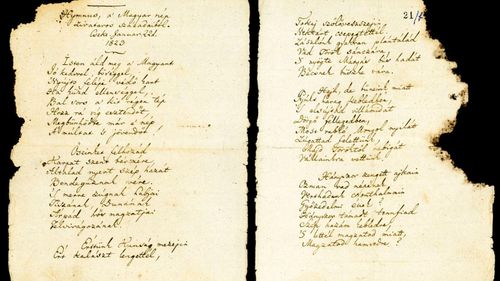 Hymnus, a' Magyar nép
zivataros századaiból.
Cseke, Januar. 22d.
1823.
Isten áldd meg a' Magyart
Jó kedvvel, bőséggel,
Nyújts feléje védő kart,
Ha küzd ellenséggel;
Bal sors a' kit régen tép,
Hozz rá víg esztendőt,
Megbűnhődte már e' nép
A' multat 's jövendőt!
Őseinket felhozád
Kárpát szent bérczére,
Általad nyert szép hazát
Bendegúznak vére.
'S merre zúgnak habjai
Tiszának, Dunának,
Árpád hős magzatjai
Felvirágozának.
Értünk Kunság mezein
Ért kalászt lengettél,
21
Tokaj szőlővesszein
Nektárt csepegtettél.
Zászlónk gyakran plántálád
Vad török sánczára,
'S nyögte Mátyás bús hadát
Bécsnek büszke vára.
Hajh, de bűneink miatt
Gyúlt harag kebledben,
'S elsújtád villámidat
Dörgő fellegedben,
Most rabló Mongol nyilát
Zúgattad felettünk,
Majd töröktől rabigát
Vállainkra vettünk.
Hányszor zengett ajkain
Ozman vad népének
Vert hadunk csonthalmain
Győzedelmi ének!
Hányszor támadt tenfiad
Szép hazám kebledre,
'S lettél magzatod miatt
Magzatod hamvvedre?